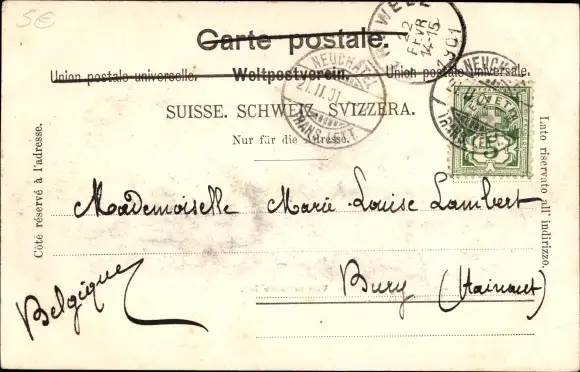 5€
Carte postale.
Union postale universelle. Weltpostverein. Union postale universale.
SUISSE. SCHWEIZ. SVIZZERA.
Nur für die Adresse.
Côté réservé à l'adresse.
Lato riservato all' indirizzo.
WELL
22
FEVR
14-15
1901
NEUCHA
21.II.01
TRANS. LETT.
NEUCH
HELVETIA
5
Mademoiselle Marie-Louise Lambert
Bury (Hainaut)
Belgique